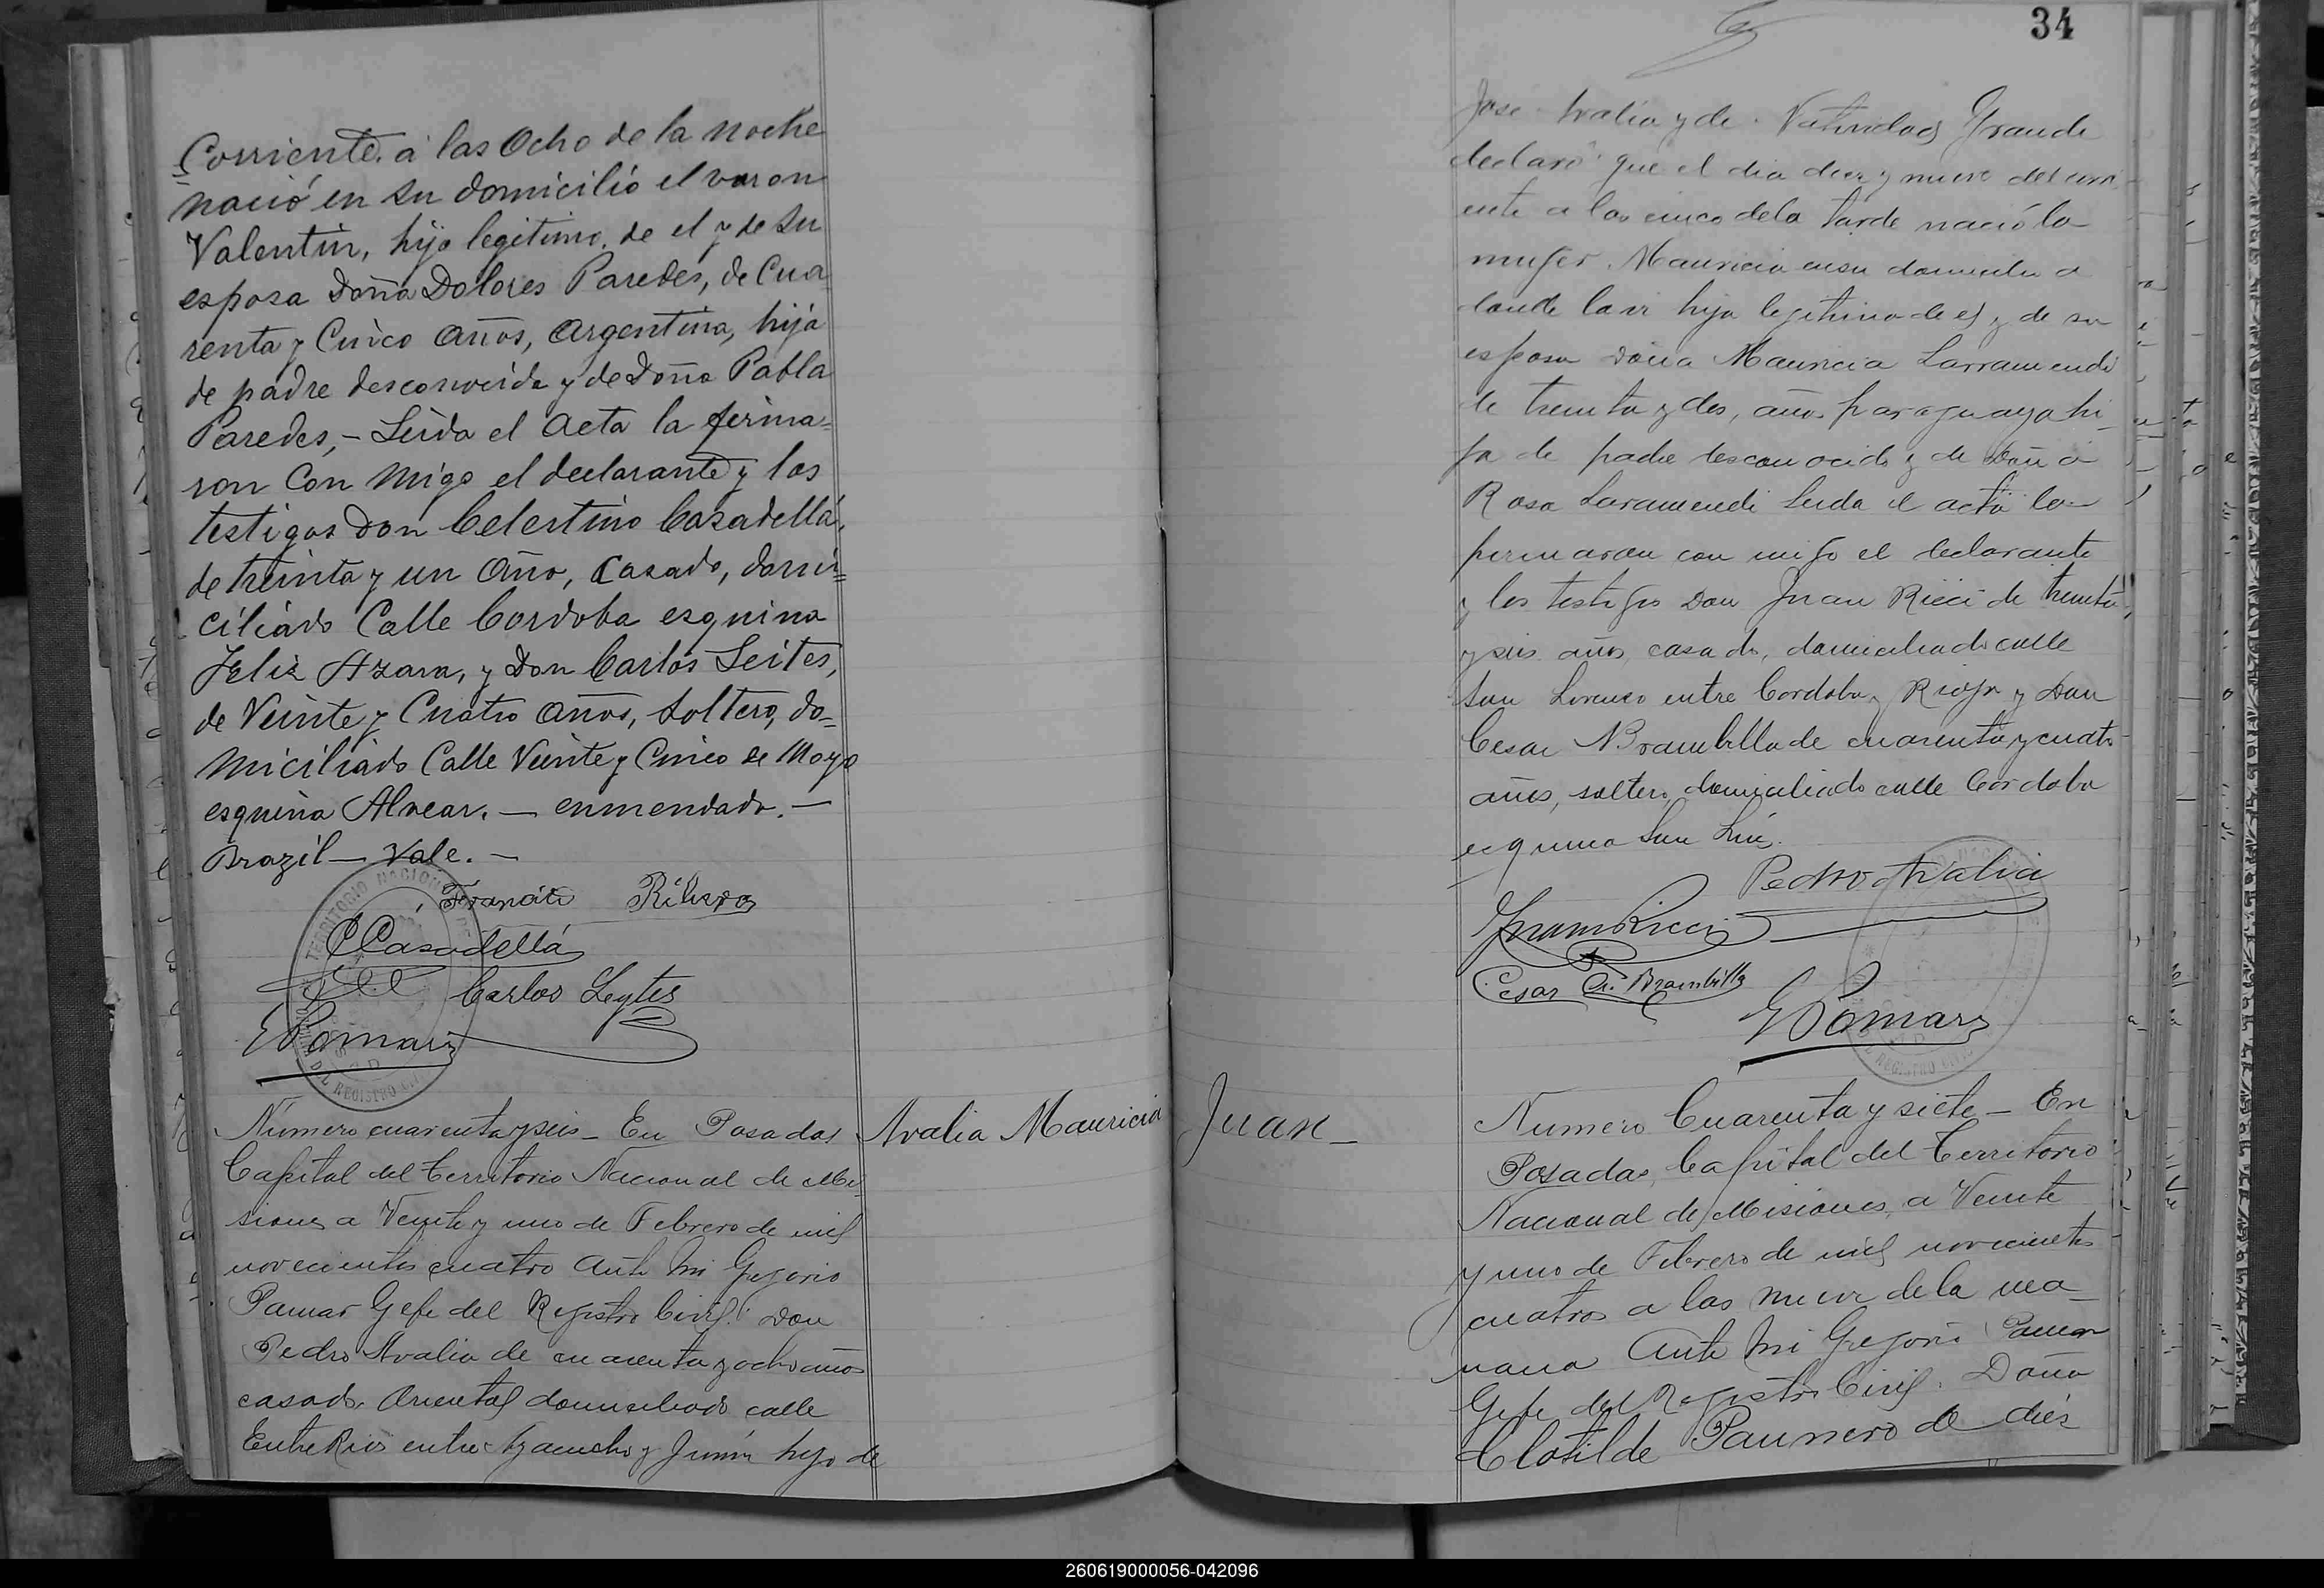 Corriente, á las Ocho de la noche
nació en su domicilio el varon
Valentin, hijo legitimo, de el y de su
esposa Doña Dolores Paredes, de Cua
renta y Cinco años, Argentina, hija
de padre desconocido y de Doña Pabla
Paredes, – Leida el Acta la firma=
ron Con migo el declarante y los
testigos Don Celestino Casadellá,
de treinta y un Año, Casado, domi=
ciliado Calle Cordoba esquina
Felix Azara, y Don Carlos Leites,
de Veinte y Cuatro años, soltero, do=
miciliado Calle Veinte y Cinco de Mayo
esquina Alvear. — enmendado. —
Brazil — Vale. —
Ribero
CCasadellá
Carlos Leytes
GPomar
TERRITORIO NACIONAL
DEL REGISTRO CIVIL
Número cuarenta y seis – En Posadas
Capital del Territorio Nacional de Mi
siones a Veinte y uno de Febrero de mil
novecientos cuatro Ante mi Gregorio
Pomar Gefe del Registro Civil: Don
Pedro Avalia de cuarenta y ocho años
casado, Oriental domiciliado calle
Entre Rios entre Ayacucho y Junin hijo de
Avalia Mauricia
34
Jose Avalia y de Natividad Grande
declaró que el dia diez y nueve del corri
ente a las cinco de la tarde nació la
mujer Mauricia en su domicilio a
donde la vi hija legitima de el y de su
esposa Doña Mauricia Larramendi
de treinta y dos, años paraguaya hi
ja de padre desconocido y de Doña
Rosa Laramendi Leida el acta la
firmaron con migo el declarante
y los testigos Don Juan Ricci de treinta
y seis años, casado, domiciliado calle
San Lorenzo entre Cordoba y Rioja y Don
Cesar Brambilla de cuarenta y cuatro
años, soltero, domiciliado calle Cordoba
esquina San Luis.
Pedro Avalia
Juan Ricci
Cesar Brambilla
GPomar
Juan –
Numero Cuarenta y siete – En
Posadas, Capital del Territorio
Nacional de Misiones, a Veinte
y uno de Febrero de mil novecientos
cuatro a las nueve de la ma
nana Ante mi Gregorio Pomar
Gefe del Registro Civil. Doña
Clotilde Paunero de diés
260619000056-042096